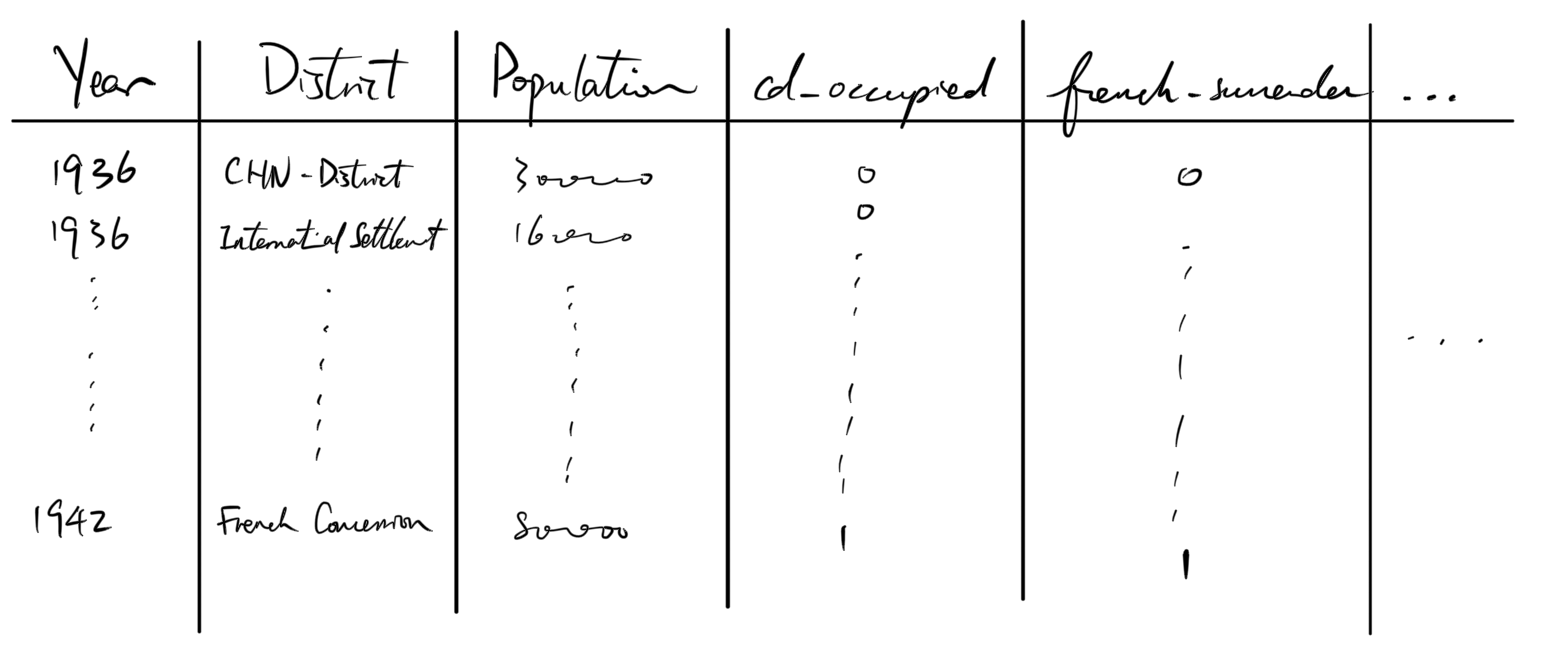 Year District Population cd_occupied french-surrender ...
1936 CHN-District 0 0
1936 International Settlement 0
1942 French Concession 1 1